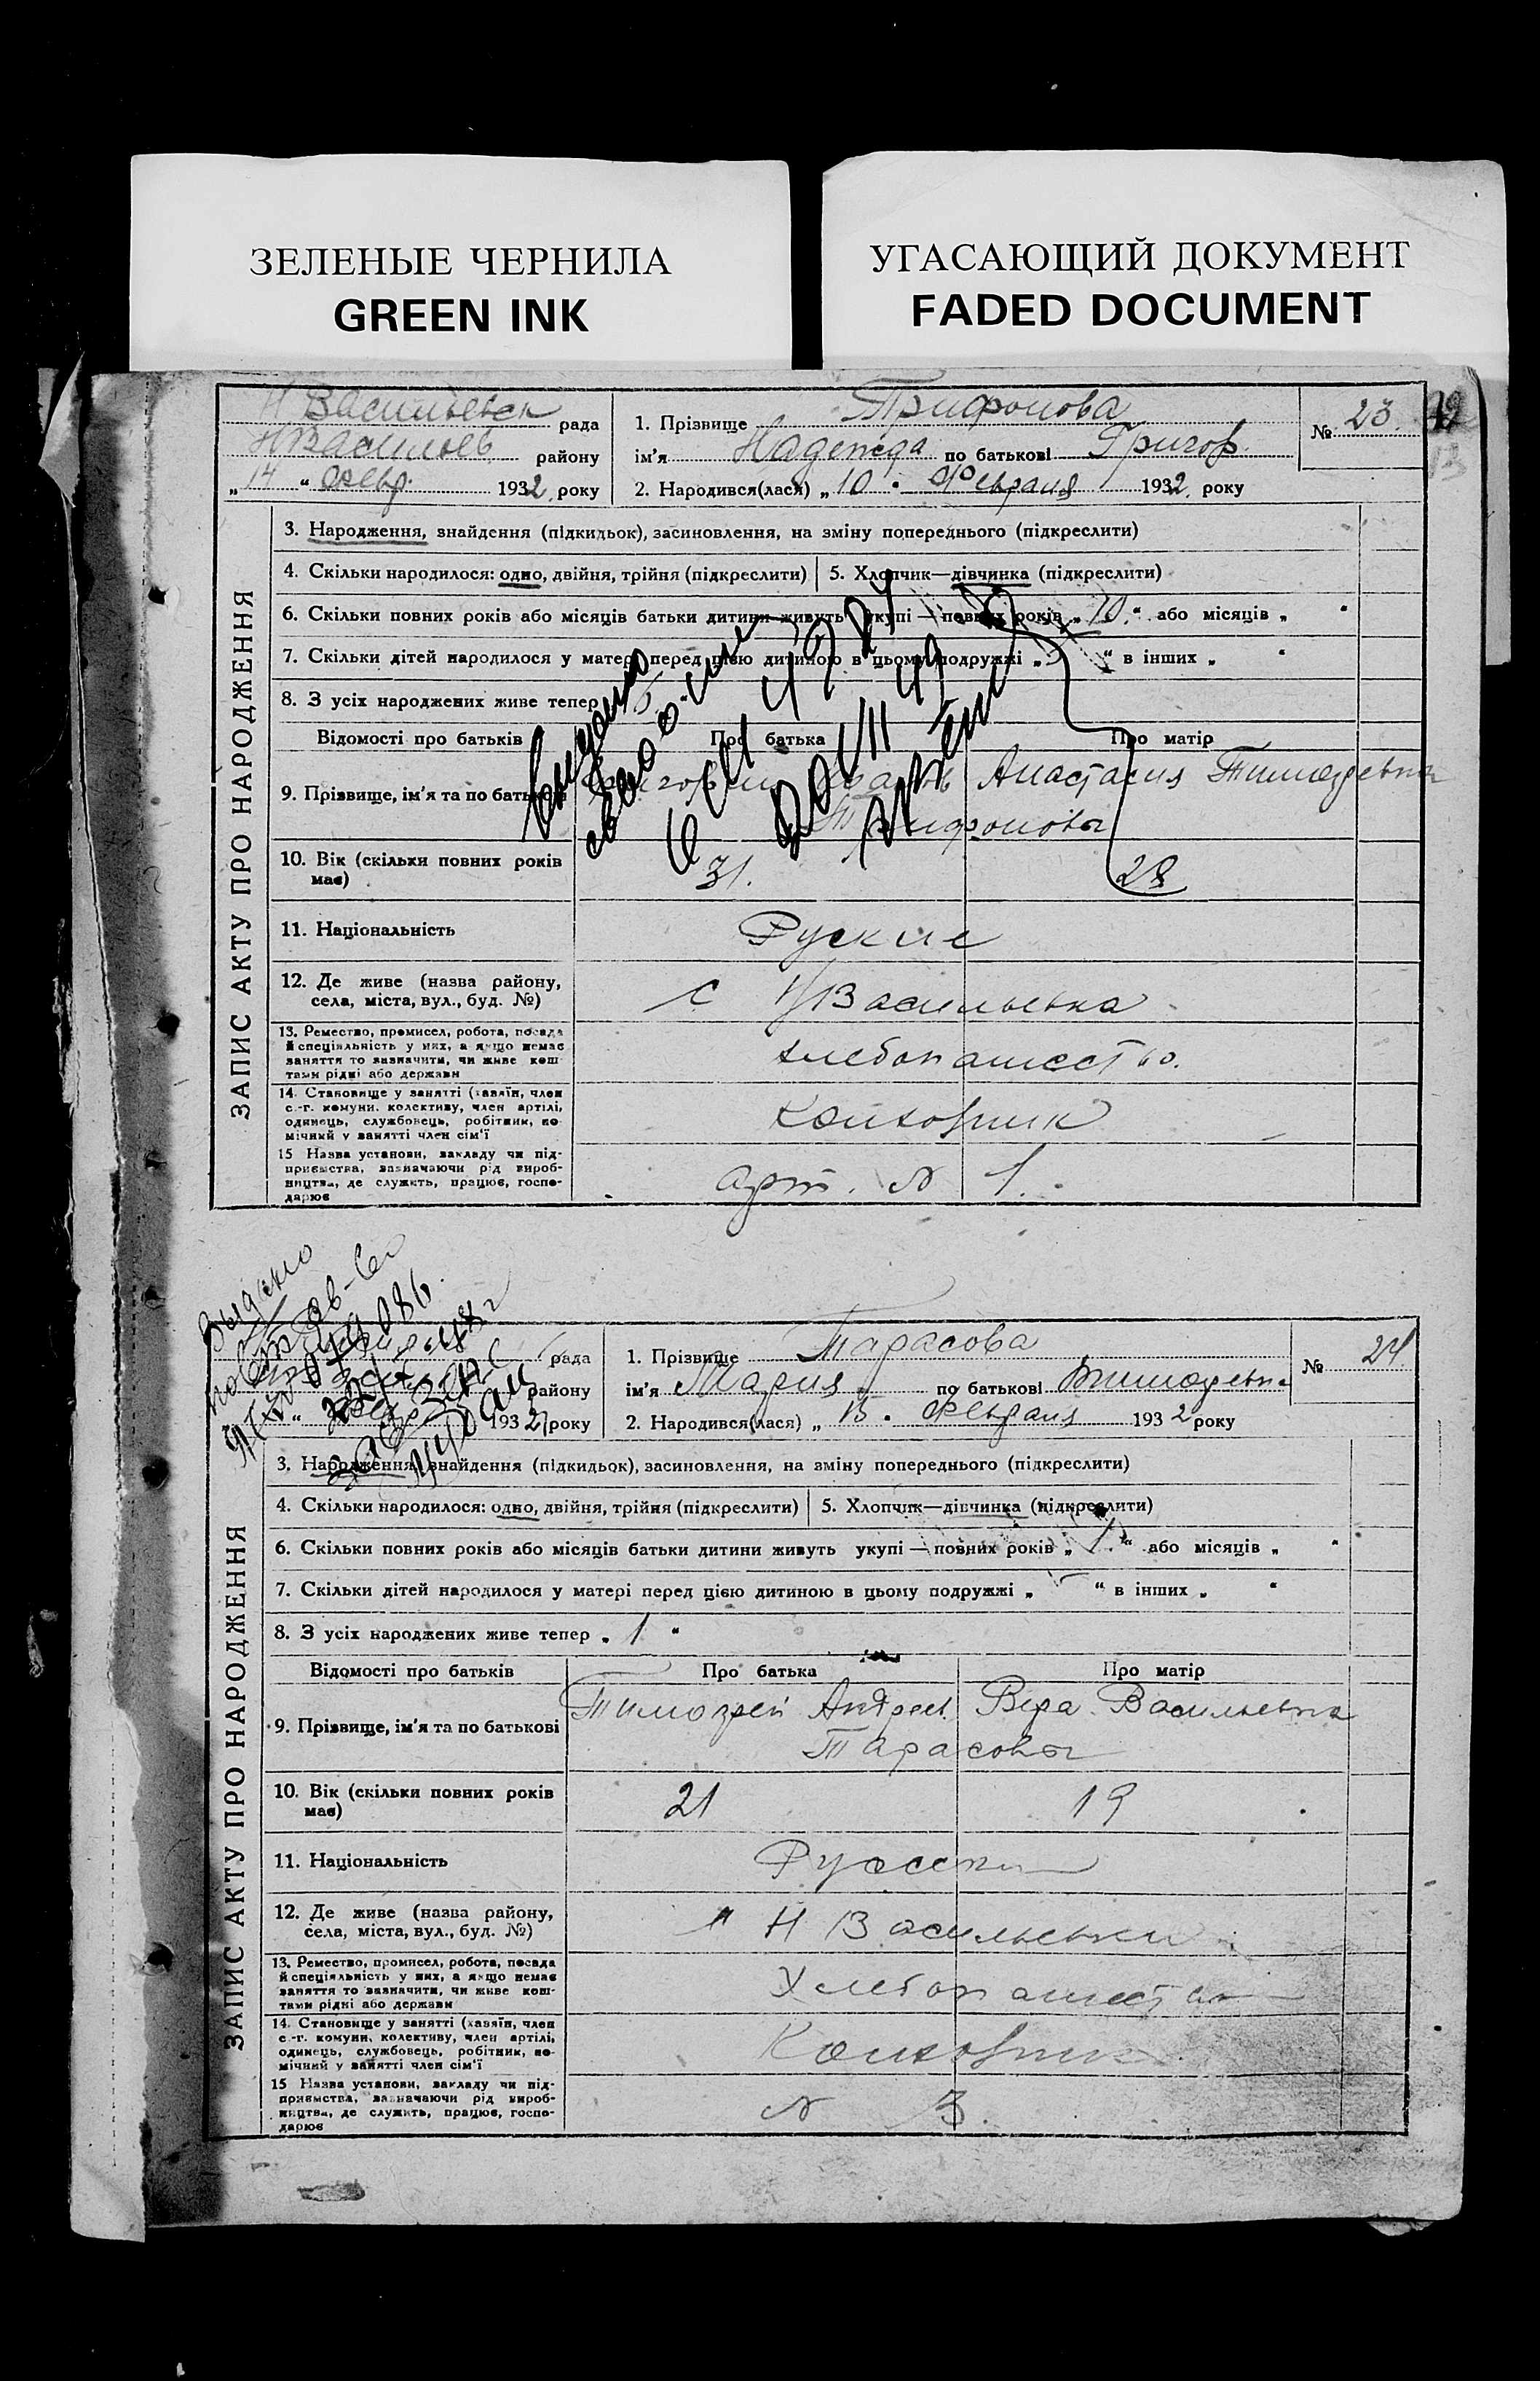 ЗЕЛЕНЫЕ ЧЕРНИЛА
GREEN INK
УГАСАЮЩИЙ ДОКУМЕНТ
FADED DOCUMENT
Н Васильевск рада
Н Васильев району
„ 14 “ февр. 1932 року
1. Прізвище Трифонова
ім'я Надежда по батькові Григор.
2. Народився(лася) „ 10 " Февраля 1932 року
№ 23.
ЗАПИС АКТУ ПРО НАРОДЖЕННЯ
3. Народження, знайдення (підкидьок), засиновлення, на зміну попереднього (підкреслити)
4. Скільки народилося: одно, двійня, трійня (підкреслити)
5. Хлопчик—дівчинка (підкреслити)
6. Скільки повних років або місяців батьки дитини живуть укупі — повних років „ 10. “ або місяців „ “
7. Скільки дітей народилося у матері перед цією дитиною в цьому подружжі „ “ в інших „ “
8. З усіх народжених живе тепер
Відомості про батьків
Про батька
Про матір
9. Прізвище, ім'я та по батькові
Анастасия Тимофеевна
Трифоновы
10. Вік (скільки повних років має)
31.
28
11. Національність
Руские
12. Де живе (назва району, села, міста, вул., буд. №)
с Н Васильевка
13. Ремество, промисел, робота, посада
й спеціяльність у них, а якщо немає
заняття то зазначити, чи живе кош-
тами рідні або держави
хлебопашество.
14. Становище у занятті (хазяїн, член
с.-г. комуни, колективу, член артілі,
одинець, службовець, робітник, по-
мічний у занятті член сім'ї
Колхозник
15 Назва установи, закладу чи під-
приємства, зазначаючи рід вироб-
ництва, де служить, працює, госпо-
дарює
арт. N 1.
Выдано
рада
району
1932 року
1. Прізвище Тарасова
ім'я Мария по батькові Тимофеевна
2. Народився(лася) „ 13 " Февраля 1932 року
№ 24.
ЗАПИС АКТУ ПРО НАРОДЖЕННЯ
3. Народження, знайдення (підкидьок), засиновлення, на зміну попереднього (підкреслити)
4. Скільки народилося: одно, двійня, трійня (підкреслити)
5. Хлопчик—дівчинка (підкреслити)
6. Скільки повних років або місяців батьки дитини живуть укупі — повних років „ 1. “ або місяців „ “
7. Скільки дітей народилося у матері перед цією дитиною в цьому подружжі „ “ в інших „ “
8. З усіх народжених живе тепер „ 1 “
Відомості про батьків
Про батька
Про матір
9. Прізвище, ім'я та по батькові
Тимофей Андреев. Вера Васильевна
Тарасовы
10. Вік (скільки повних років має)
21
19
11. Національність
12. Де живе (назва району, села, міста, вул., буд. №)
Н Васильевки
13. Ремество, промисел, робота, посада
й спеціяльність у них, а якщо немає
заняття то зазначити, чи живе кош-
тами рідні або держави
Хлебопашество
14. Становище у занятті (хазяїн, член
с.-г. комуни, колективу, член артілі,
одинець, службовець, робітник, по-
мічний у занятті член сім'ї
Колхозник
15 Назва установи, закладу чи під-
приємства, зазначаючи рід вироб-
ництва, де служить, працює, госпо-
дарює
N 3.